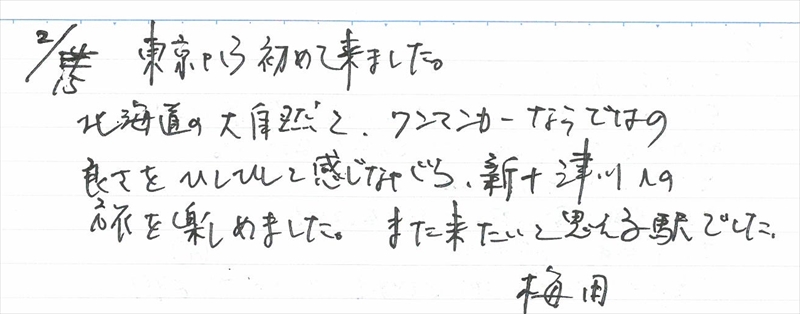 2/15 東京から初めて来ました。
北海道の大自然と、ワンマンカーならではの
良さをひしひしと感じながら、新十津川への
旅を楽しめました。また来たいと思える駅でした。
梅田